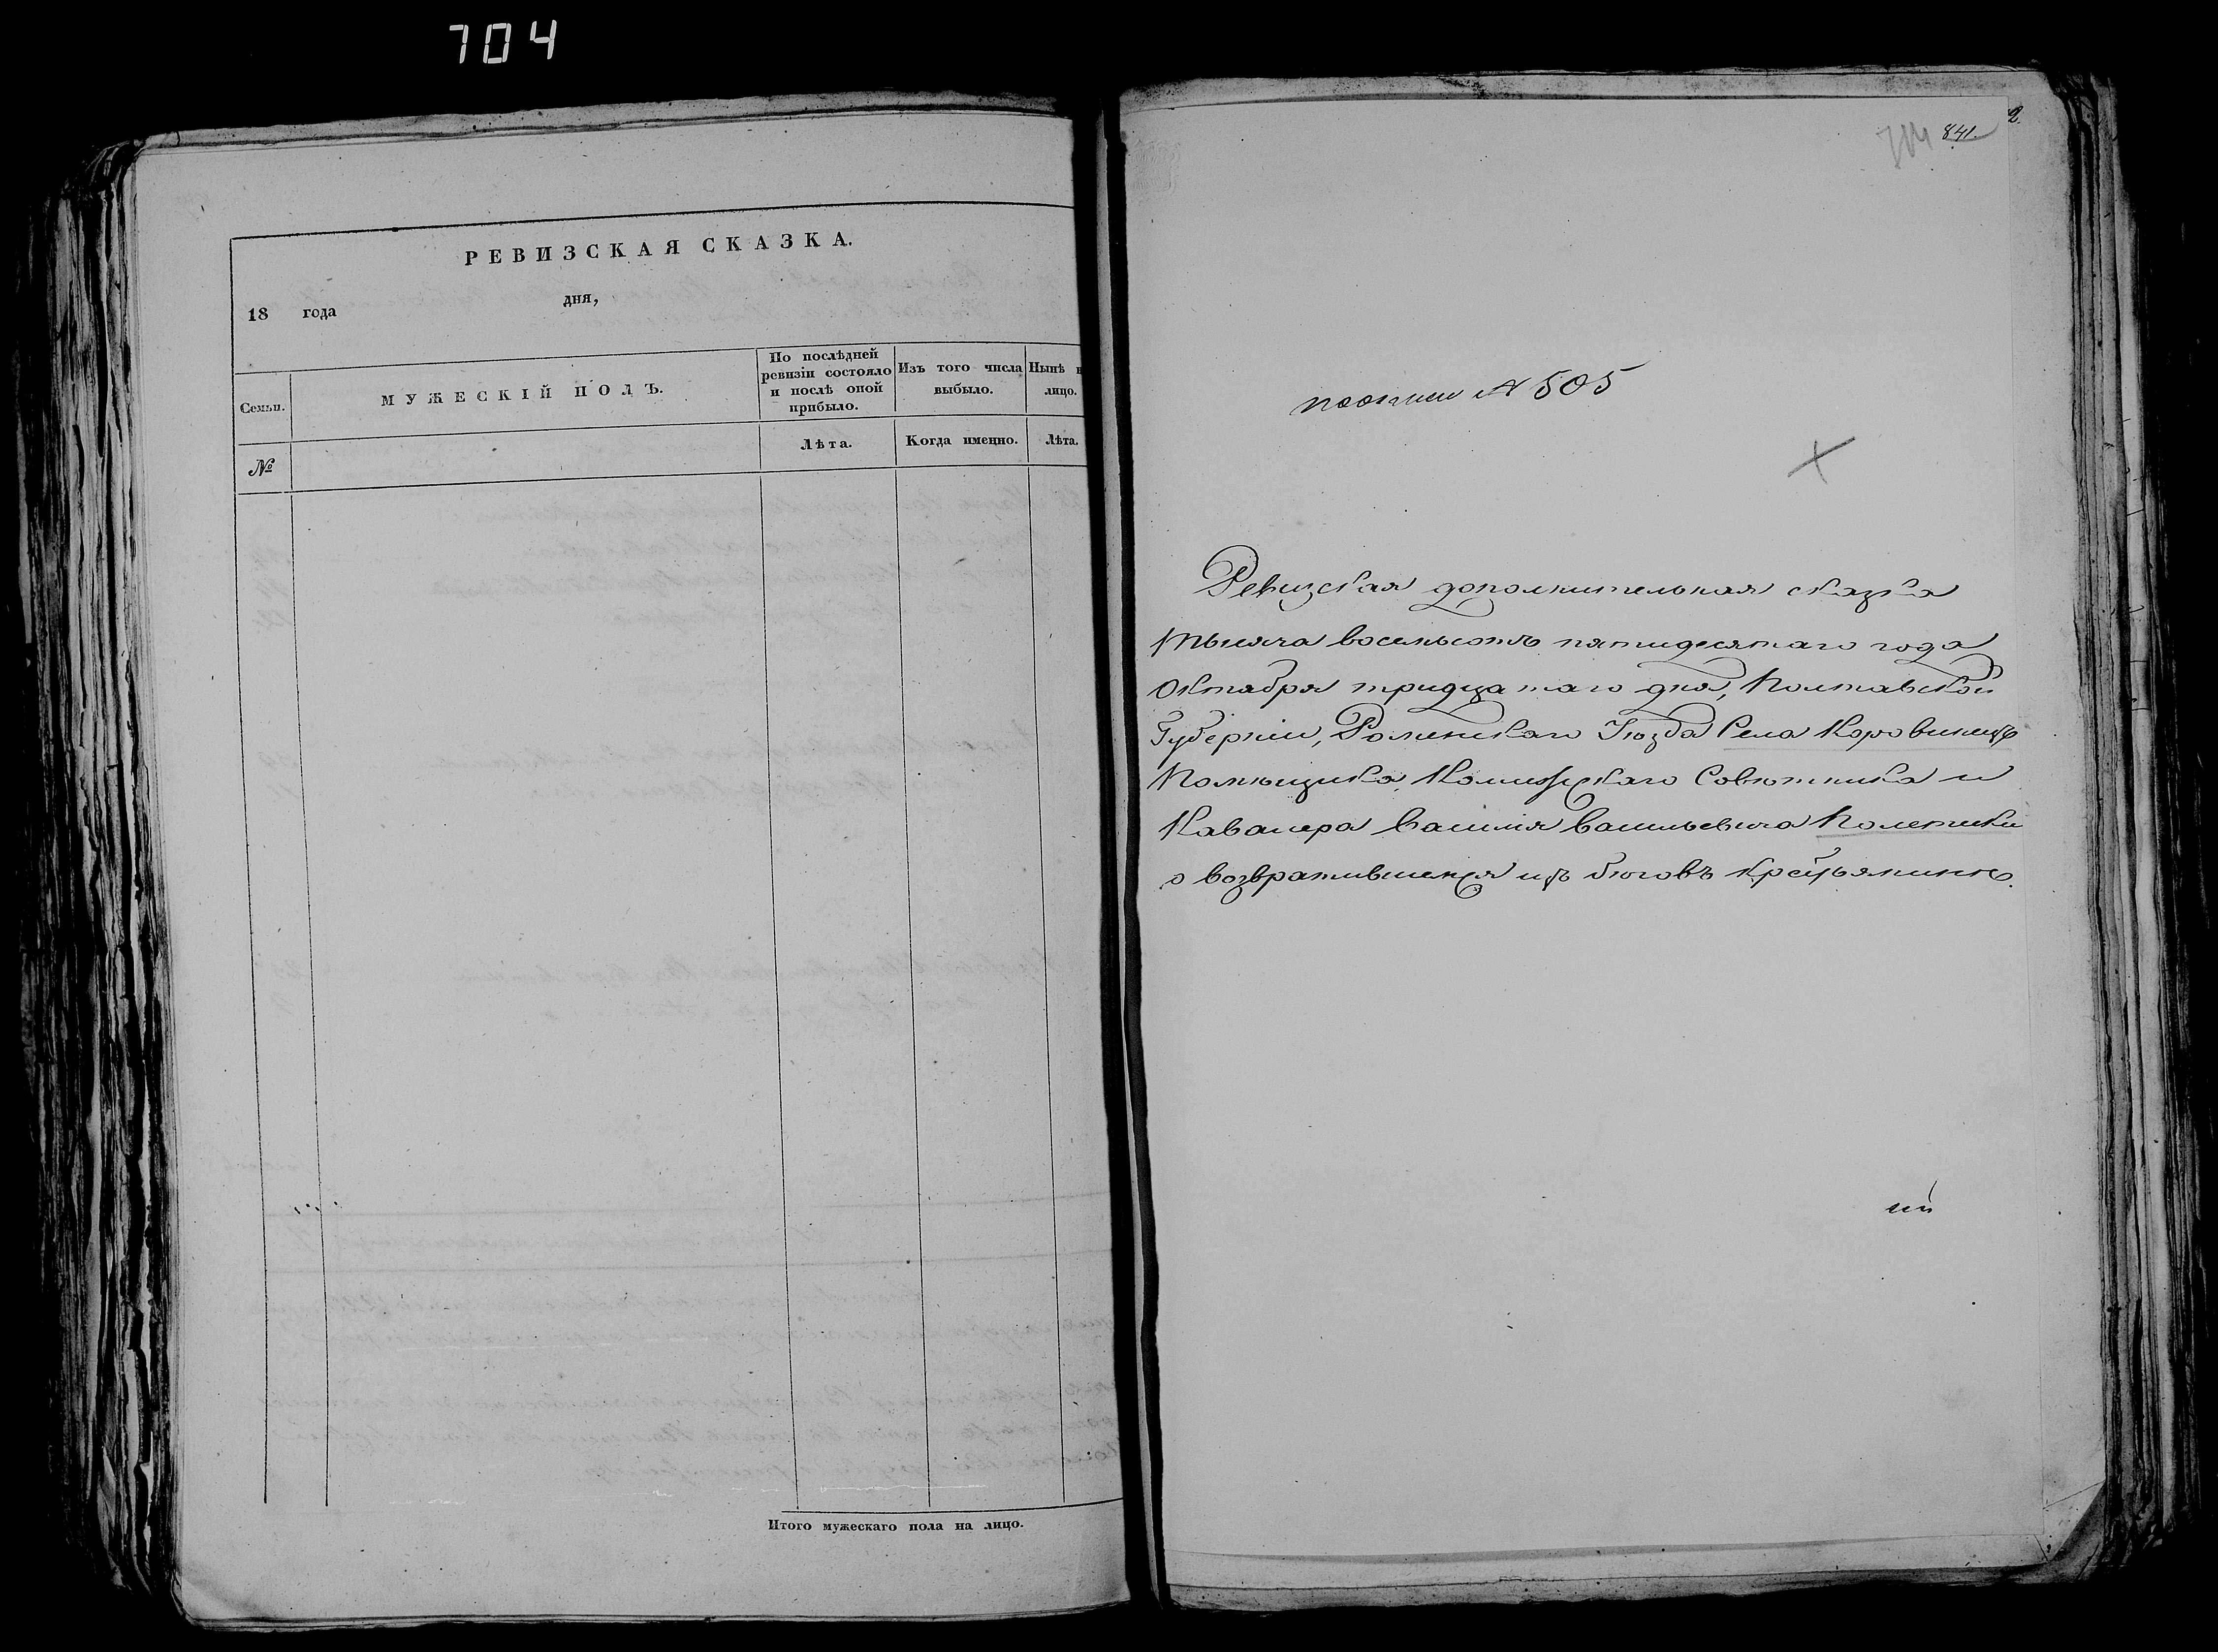 704
РЕВИЗСКАЯ СКАЗКА.
18 года дня,
Семьи.
МУЖЕСКІЙ ПОЛЪ.
По послѣдней ревизіи состояло и послѣ оной прибыло.
Изъ того числа выбыло.
Нынѣ н
лицо.
№
Лѣта.
Когда именно.
Лѣта.
Итого мужескаго пола на лицо.
704 841. 2.
по описи № 505
Ревизская дополнительная сказка
тысяча восемьсотъ пятидесятаго года
Октября тридцатаго дня, Полтавской
Губерніи, Роменскаго Уѣзда Села Коровинецъ
Помѣщика, Коллежскаго Совѣтника и
Кавалера Василія Васильевича Полетики
о возвратившемся изъ бѣговъ крестьянинѣ.